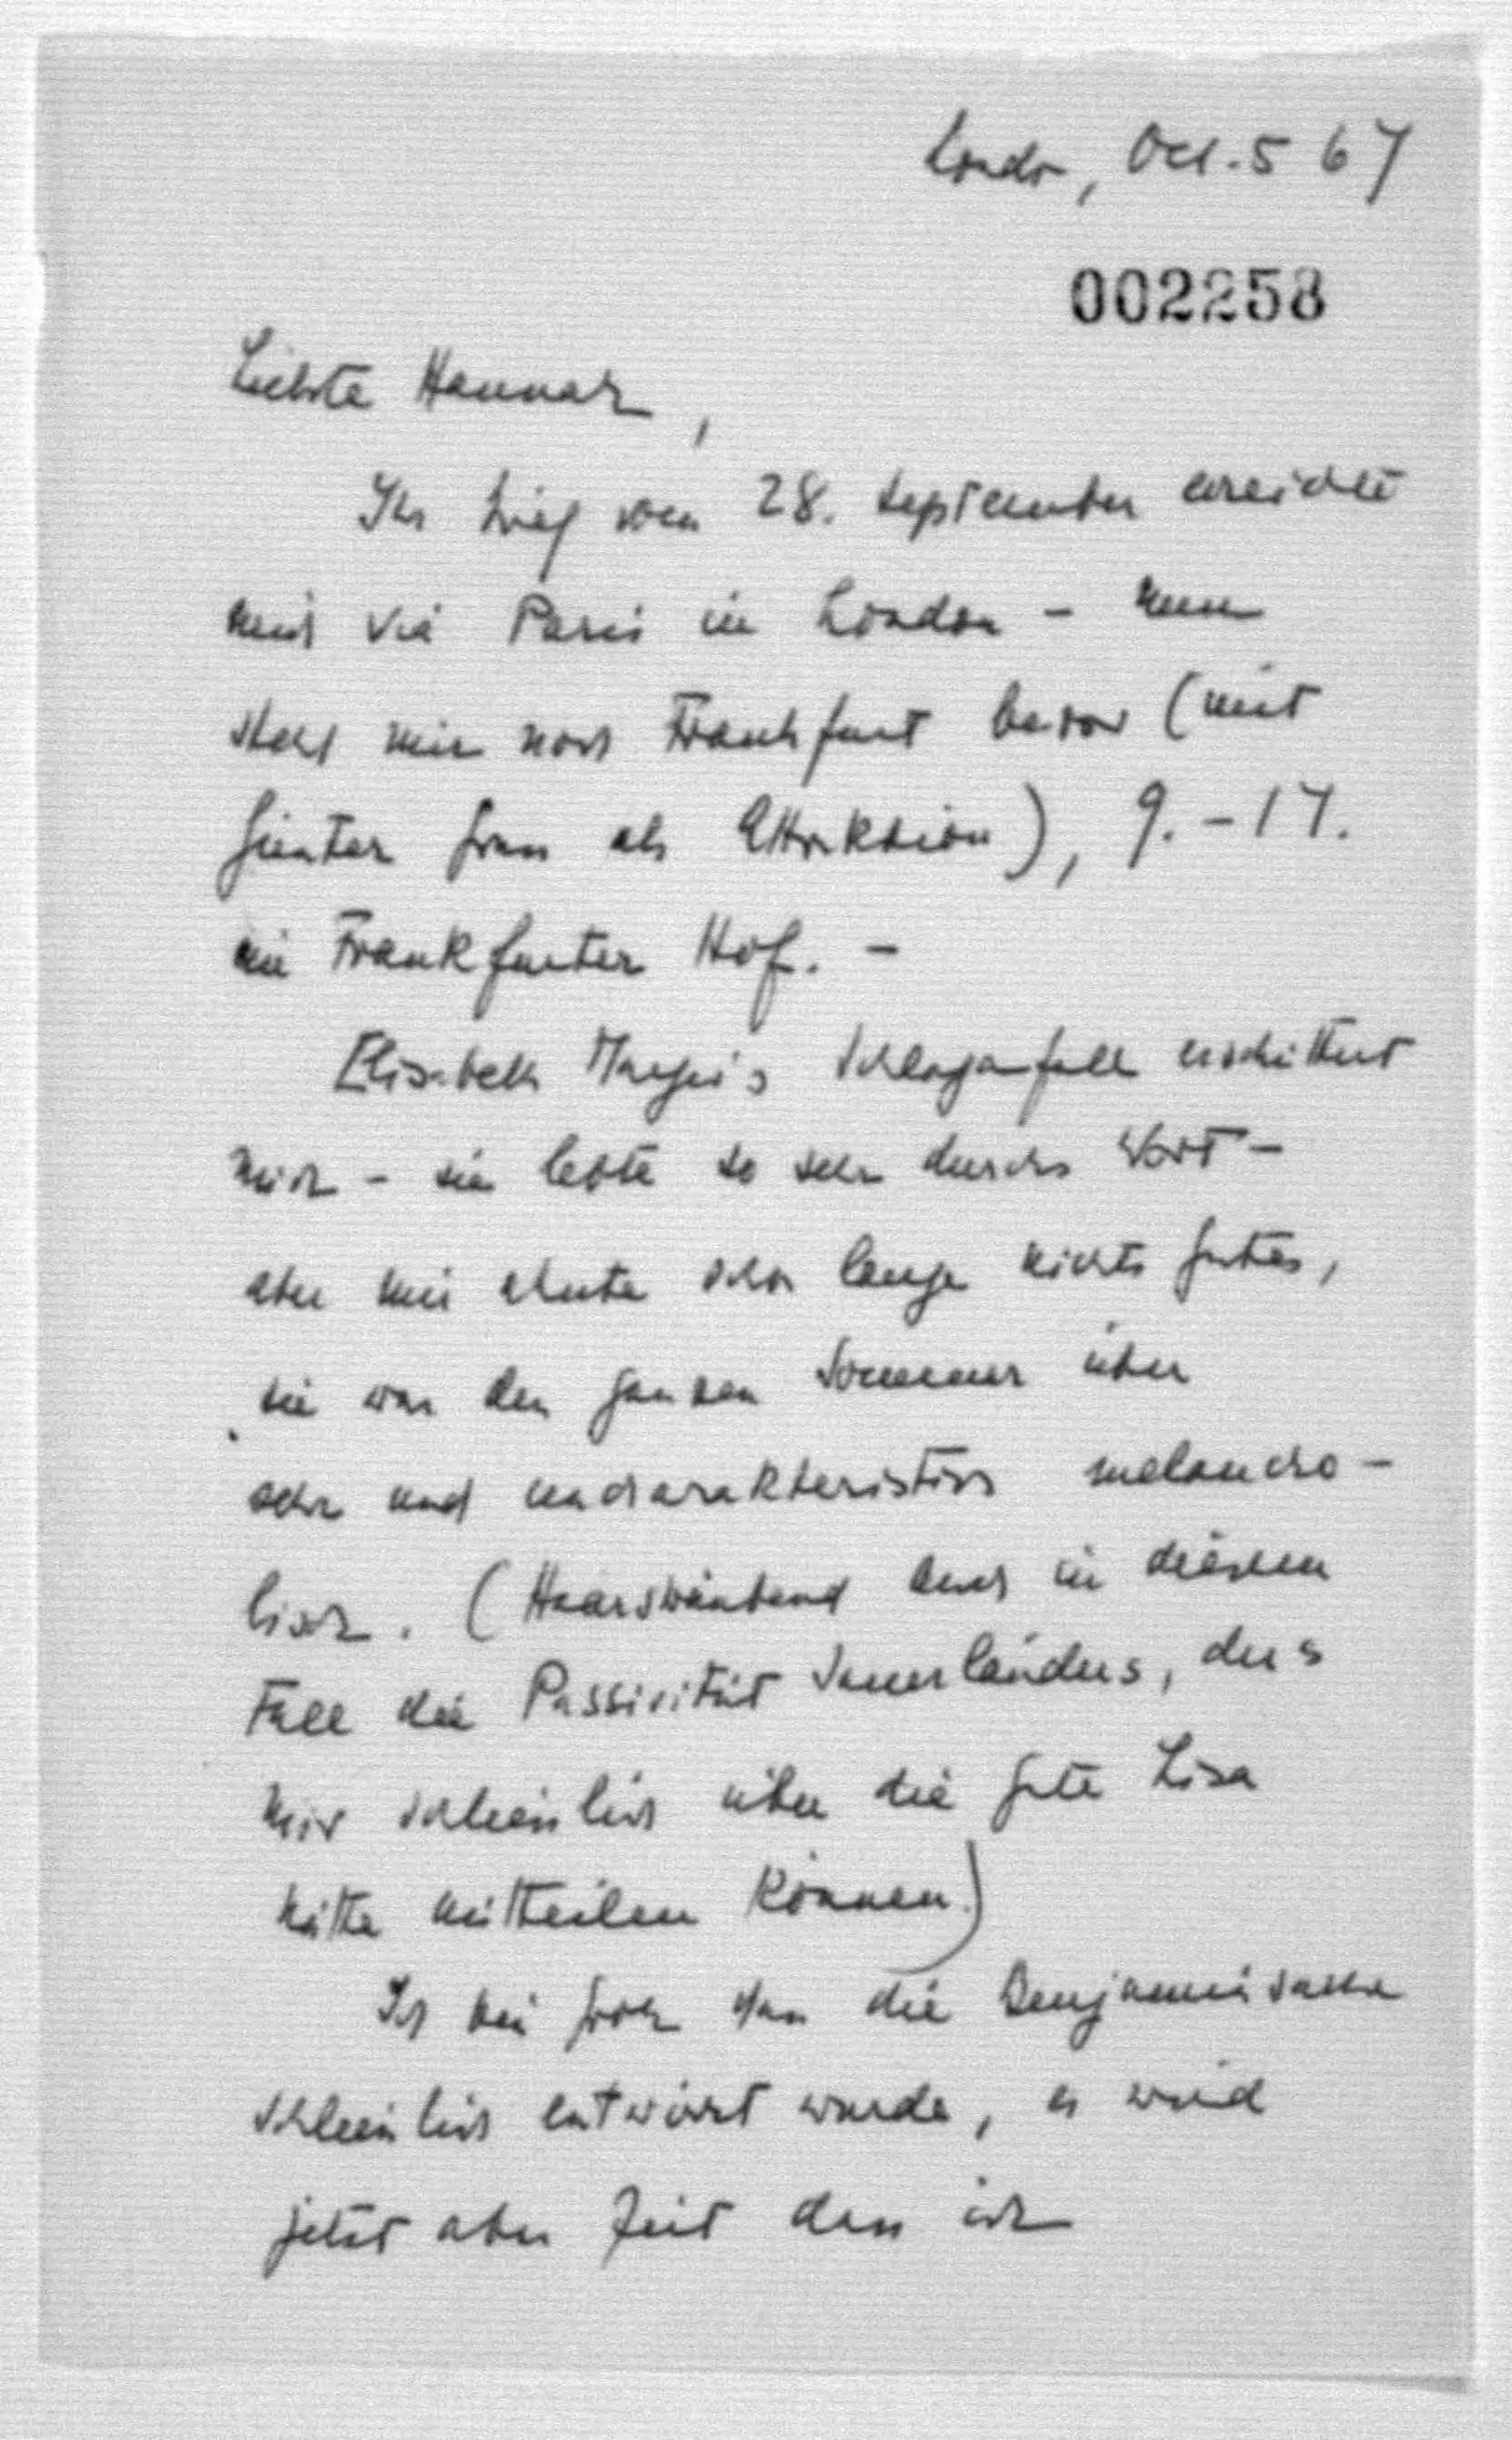 London, Oct. 5 67
002258
Liebste Hannah,
Ihr Brief vom 28. September erreichte
mich via Paris in London – nun
steht mir noch Frankfurt bevor (mit
Günter Grass als Attraktion), 9. – 17.
im Frankfurter Hof. –
Elisabeth Schlaganfall erschüttert
mich – sie lebte so sehr durchs Wort –
aber mir ahnte schon lange nichts gutes,
sie war den ganzen Sommer über
sehr und uncharakteristisch melancho-
lisch. (Haarsträubend auch in diesem
Fall die Passivität Sauerländers, der's
mir schleunigst über die gute Lisa
hätte mitteilen können.)
Ich bin froh dass die Benjaminsache
schleunigst entwirrt wurde, es wird
jetzt aber Zeit dass ich